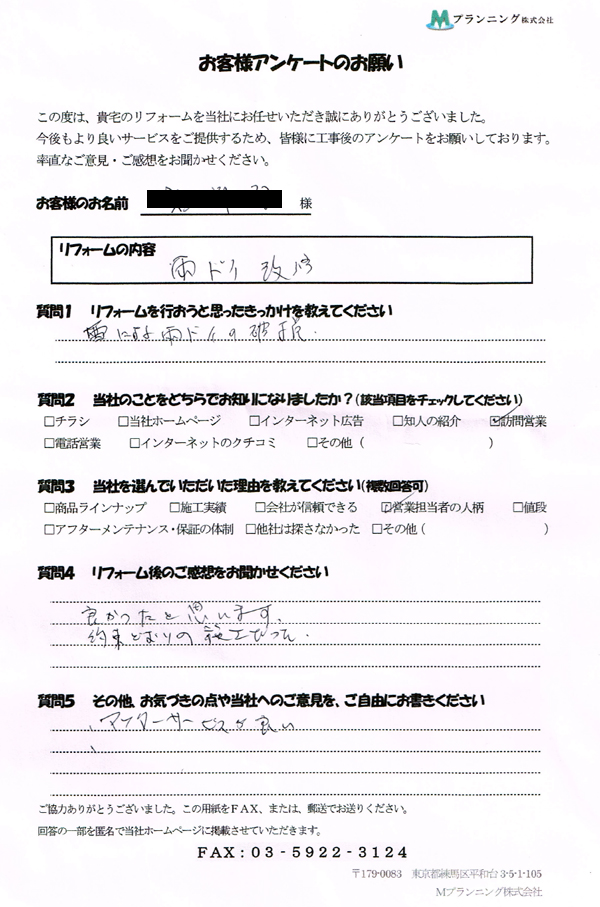 Mプランニング株式会社
お客様アンケートのお願い
この度は、貴宅のリフォームを当社にお任せいただき誠にありがとうございました。
今後もより良いサービスをご提供するため、皆様に工事後のアンケートをお願いしております。
率直なご意見・ご感想をお聞かせください。
お客様のお名前 様
リフォームの内容
雨ドイ 改修
質問1 リフォームを行おうと思ったきっかけを教えてください
雪による雨ドイの破損.
質問2 当社のことをどちらでお知りになりましたか？(該当項目をチェックしてください)
□チラシ □当社ホームページ □インターネット広告 □知人の紹介 ☑訪問営業
□電話営業 □インターネットのクチコミ □その他（ ）
質問3 当社を選んでいただいた理由を教えてください(複数回答可)
□商品ラインナップ □施工実績 □会社が信頼できる ☑営業担当者の人柄 □値段
□アフターメンテナンス・保証の体制 □他社は探さなかった □その他（ ）
質問4 リフォーム後のご感想をお聞かせください
良かったと思います.
約束どおりの施工だった.
質問5 その他、お気づきの点や当社へのご意見を、ご自由にお書きください
、アフターサービスが良い
、
ご協力ありがとうございました。この用紙をFAX、または、郵送でお送りください。
回答の一部を匿名で当社ホームページに掲載させていただきます。
FAX：03-5922-3124
〒179-0083 東京都練馬区平和台3-5-1-105
Mプランニング株式会社